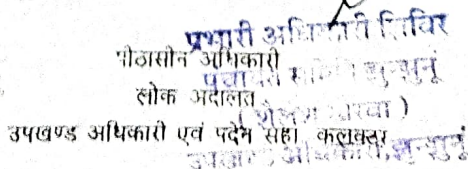 प्रभारी अधिकारी शिविर
पीठासीन अधिकारी
पंचायत समिति झुन्झुनूं
लोक अदालत
उपखण्ड अधिकारी एवं पदेन सहा. कलक्टर
उपखण्ड अधिकारी, झुन्झुनूं